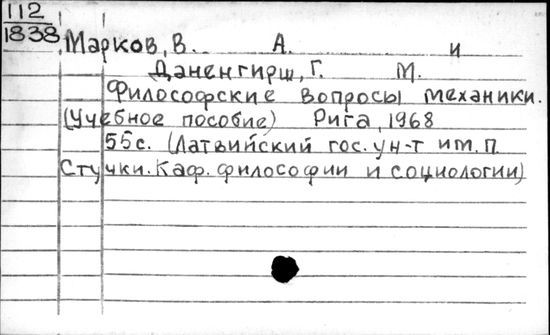 112
1838
Марков, В. А. и
Даненгирш, Г. М.
Философские вопросы механики.
(Учебное пособие) Рига, 1968
55с. (Латвийский гос. ун-т им. П.
Стучки. Каф. философии и социологии)